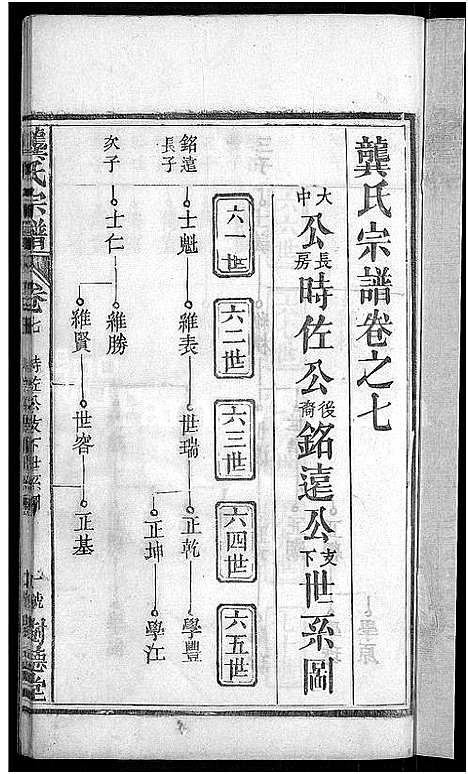 龔氏宗譜卷之七
大中公長房時佐公後裔銘遠公支下世系圖
六一世 六二世 六三世 六四世 六五世
銘遠長子 士魁 維表 世瑞 正乾 學豐
正坤 學江
次子 士仁 維勝
維賢 世容 正基
龔氏宗譜 卷七 時佐公支下世系圖